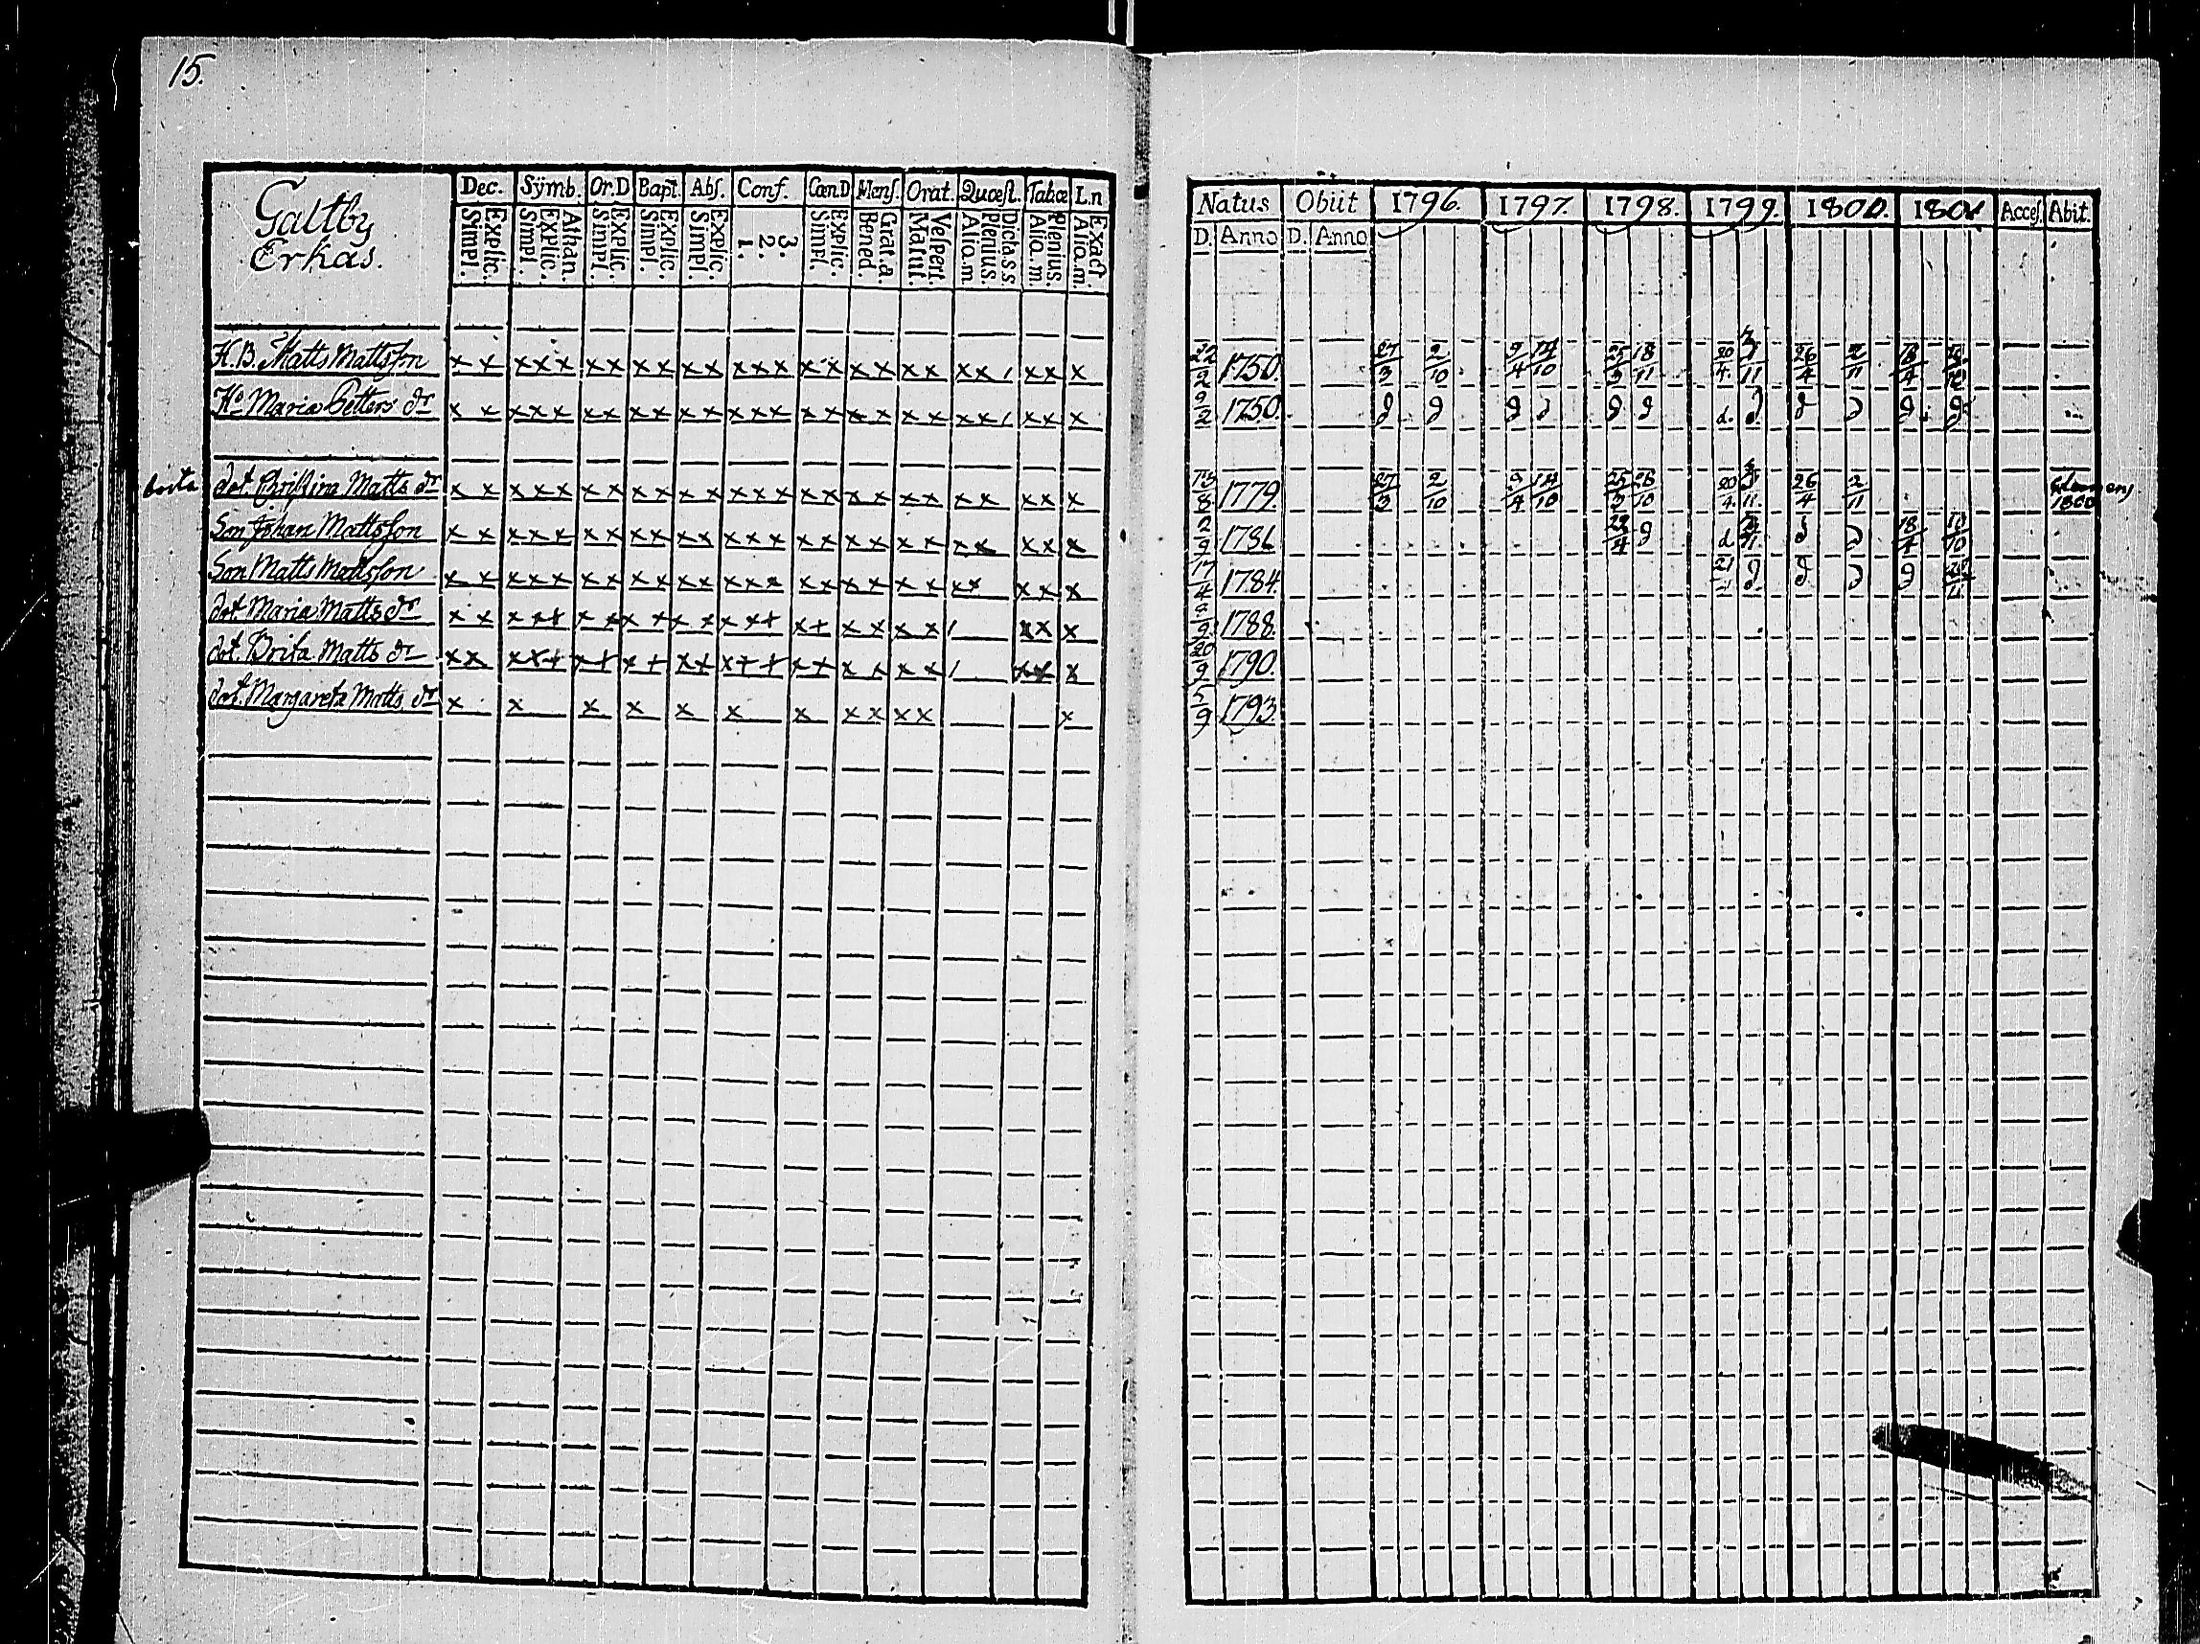 15.
Galtby
Erkas.
Dec. Sÿmb. Or.D Bapt. Abſ. Conf. Cœn.D Menſ. Orat. Quæſt. Tabœ Ln
Explic. Simpl. Athan. Explic. Simpl. Explic. Simpl. Explic. Simpl. Explic. Simpl. 3. 2. 1. Explic. Simpl. Grat.a. Bened. Veſpert. Matut. Dicta.s.s. Plenius. Alio.m. Plenius. Alio.m. Exact. Alio.m.
Natus Obiit 1796. 1797. 1798. 1799. 1800. 1801 Acceſ. Abit.
D. Anno D. Anno
H. B. Matts Mattsſon x x x x x x x x x x x x x x x x x x x x x x x x x x 22/2 1750. 27/3 2/10 9/4 14/10 25/3 18/11 20/4 3/11 26/4 2/11 18/4
Hu Maria Petters dr x x x x x x x x x x x x x x x x x x x x x x x x x x 9/2 1750.
borta dot. Chriſtina Matts dr x x x x x x x x x x x x x x x x x x x x x x x x x x 13/8 1779. 27/3 2/10 9/4 14/10 25/3 28/10 20/4 3/11 26/4 2/11 1800
Son Johan Mattsſon x x x x x x x x x x x x x x x x x x x x x x x x x x 2/9 1786 22/4 18/4 18/10
Son Matts Mattsſon x x x x x x x x x x x x x x x x x x x x x x x x x x 17/4 1784.
dot. Maria Matts dr x x x x x x x x x x x x x x x x x x x x x x x x 1788.
dot. Brita Matts dr x x x x x x x x x x x x x x x x x x x x x x x x 20/9 1790.
dot. Margareta Matts dr x x x x x x x x x x x x 5/9 1793.